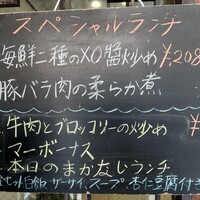 スペシャルランチ
海鮮二種のXO醤炒め ¥,208
豚バラ肉の柔らか煮
・牛肉とブロッコリーの炒め ¥
マーボーナス
・本日のまかないランチ
セット白飯 ザーサイ、スープ、杏仁豆腐付き